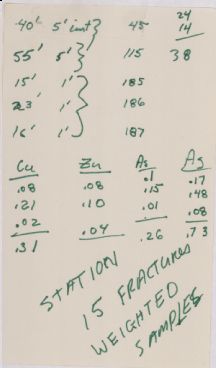 40' 5' int } 45 24
14
55' 5' } 115 38
15' 1' } 185
23' 1' } 186
16' 1' } 187
Cu Zn As Ag
.08 .08 .1 .17
.21 .10 .15 .48
.02 .04 .01 .08
.31 .26 .73
STATION
15 FRACTURES
WEIGHTED
SAMPLES